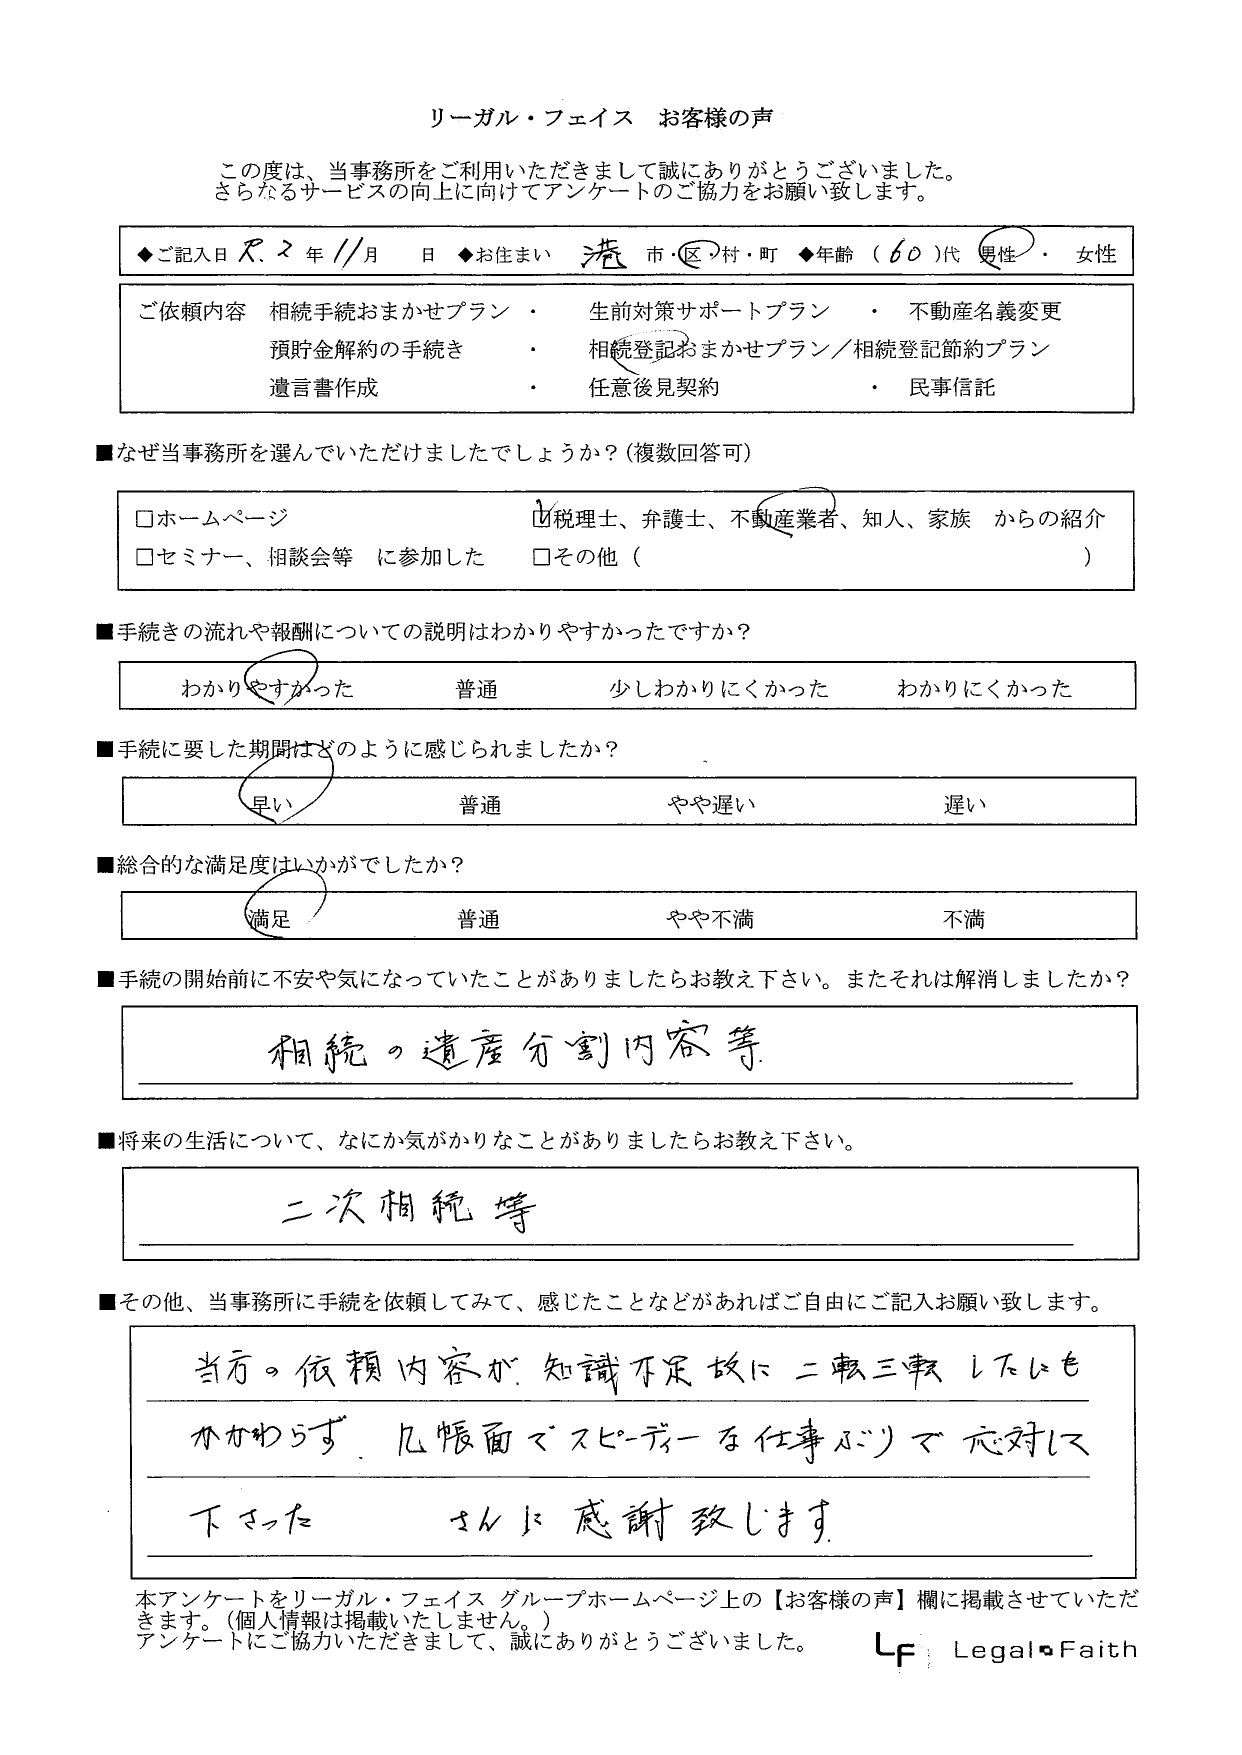 リーガル・フェイス　お客様の声
この度は、当事務所をご利用いただきまして誠にありがとうございました。
さらなるサービスの向上に向けてアンケートのご協力をお願い致します。
◆ご記入日 R.2 年 11月　日 ◆お住まい 港 市・区・村・町 ◆年齢（60）代 男性・女性
ご依頼内容　相続手続おまかせプラン・生前対策サポートプラン・不動産名義変更
預貯金解約の手続き・相続登記おまかせプラン／相続登記節約プラン
遺言書作成・任意後見契約・民事信託
■なぜ当事務所を選んでいただけましたでしょうか？（複数回答可）
□ホームページ　☑税理士、弁護士、不動産業者、知人、家族　からの紹介
□セミナー、相談会等　に参加した　□その他（　）
■手続きの流れや報酬についての説明はわかりやすかったですか？
わかりやすかった　普通　少しわかりにくかった　わかりにくかった
■手続に要した期間はどのように感じられましたか？
早い　普通　やや遅い　遅い
■総合的な満足度はいかがでしたか？
満足　普通　やや不満　不満
■手続の開始前に不安や気になっていたことがありましたらお教え下さい。またそれは解消しましたか？
相続の遺産分割内容等.
■将来の生活について、なにか気がかりなことがありましたらお教え下さい。
二次相続等
■その他、当事務所に手続を依頼してみて、感じたことなどがあればご自由にご記入お願い致します。
当方の依頼内容が、知識不足故に二転三転したにも
かかわらず、几帳面でスピーディーな仕事ぶりで応対して
下さった　　さんに感謝致します.
本アンケートをリーガル・フェイス グループホームページ上の【お客様の声】欄に掲載させていただ
きます。（個人情報は掲載いたしません。）
アンケートにご協力いただきまして、誠にありがとうございました。
LF Legal Faith